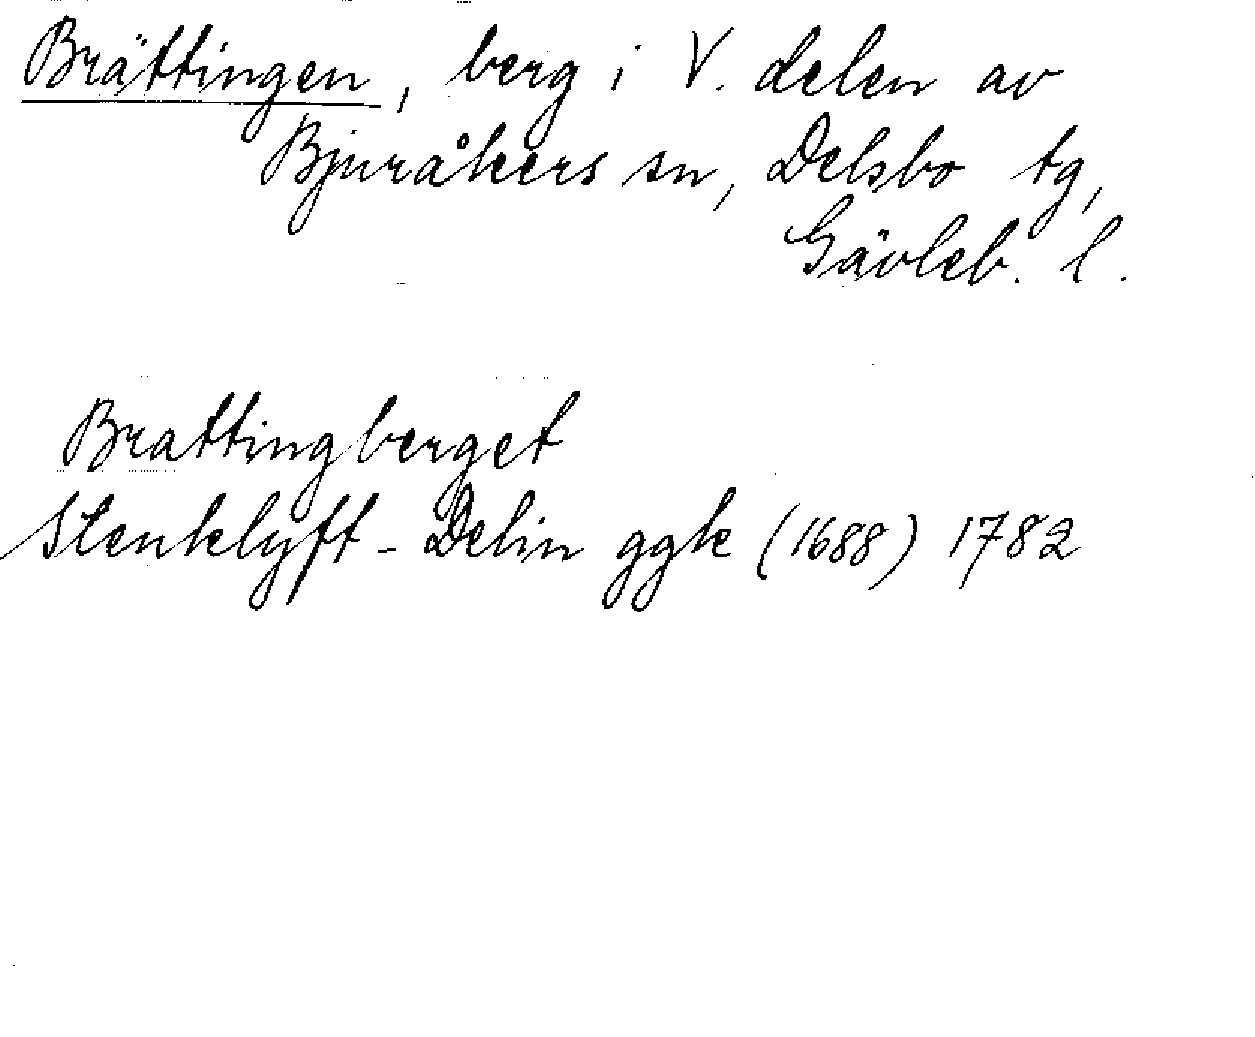 Brättingen, berg i V. delen av
Bjuråkers sn, Delsbo tg,
Gävleb. l.
Brattingberget
Stenklyft - Delin ggk (1688) 1782